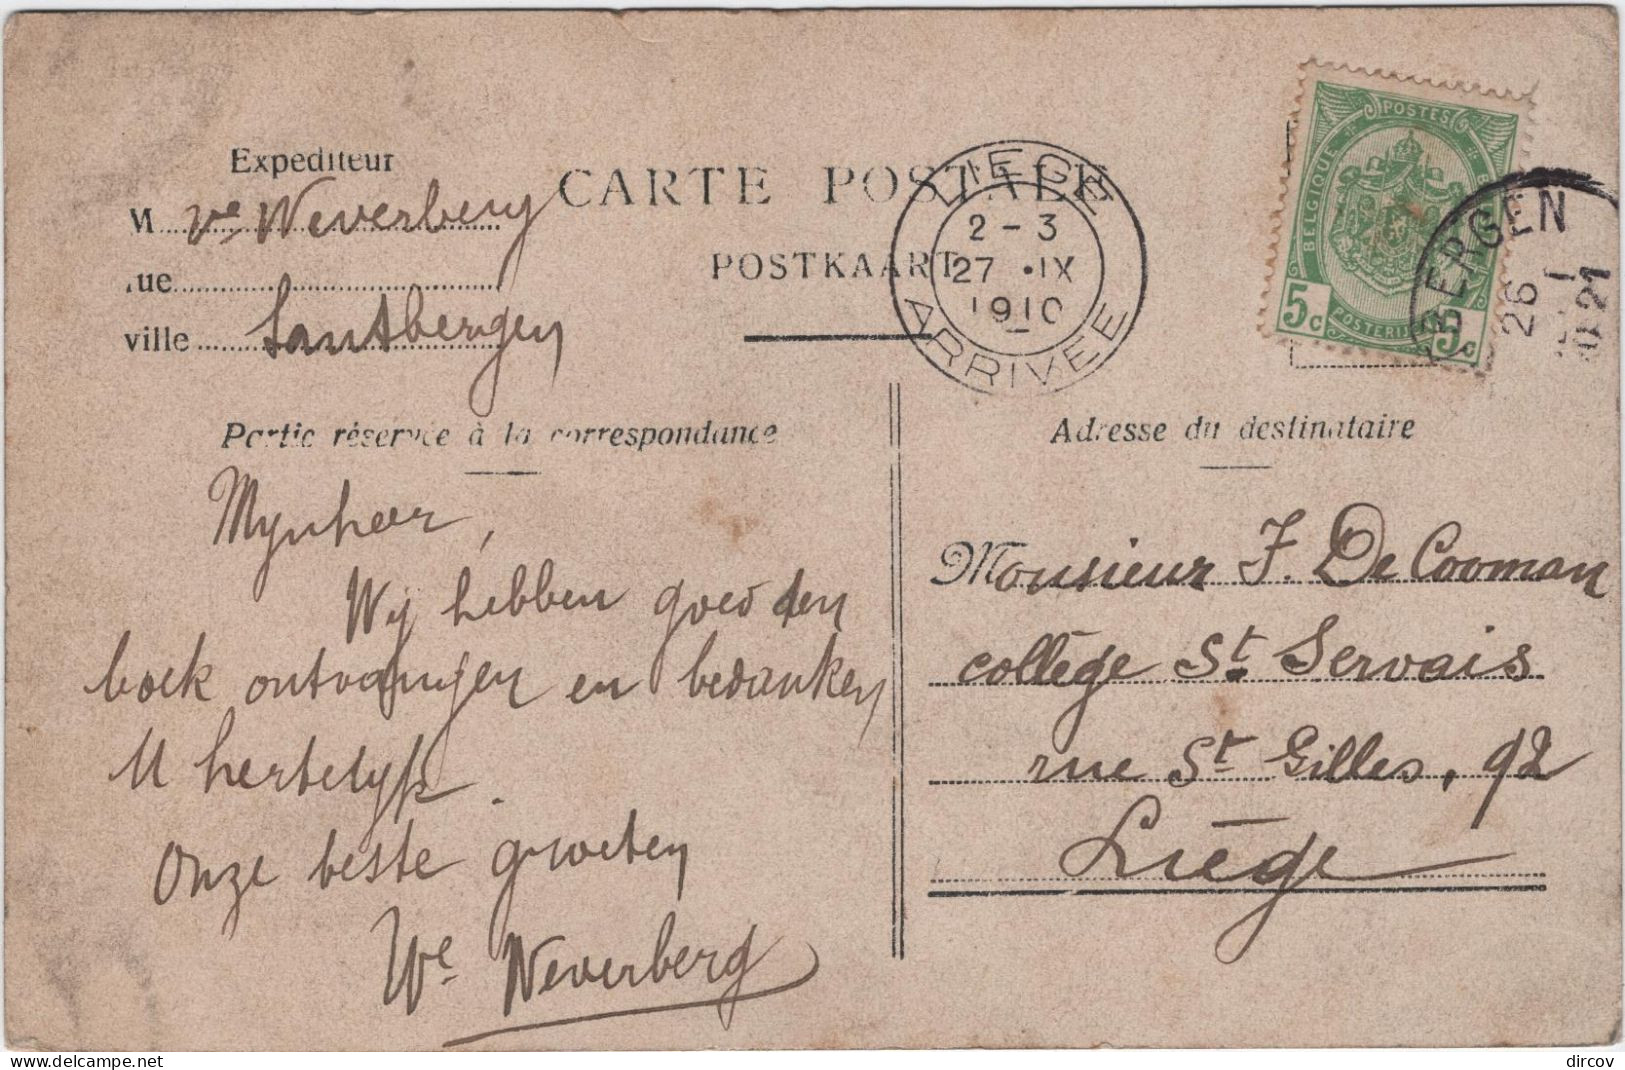 Expediteur
M ve Weverberg
rue
ville Santbergen
CARTE POSTALE
POSTKAART
LIEGE
2-3
27 • IX
1910
ARRIVEE
POSTES
BELGIQUE
5c
5c
BERGEN
26
21
Partie réservée à la correspondance
Adresse du destinataire
Mynheer,
Wy hebben goed den
boek ontvangen en bedanken
U hertelyk.
Onze beste groeten
We Weverberg
Monsieur F. De Cooman
collège St. Servais
rue St Gilles, 92
Liége
delcampe.net
dircov